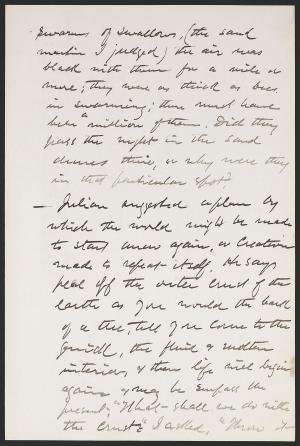 swarms of swallows, (the sand
martin I judged) the air was
black with them for a mile or
more; they were as thick as bees
in swarming; there must have
been a million of them. Did they
pass the night in the sand
dunes there, or why were they
in that particular spot?
— Julian suggested a plan by
which the world might be made
to start anew again, or Creation
made to repeat itself. He says
peal off the outer crust of the
earth as you would the bark
of a tree, till you come to the
quick, the fluid or molten
interior, & then life will begin
again & may be surpass the
present; "What shall we do with
the crust" I asked, "Throw it